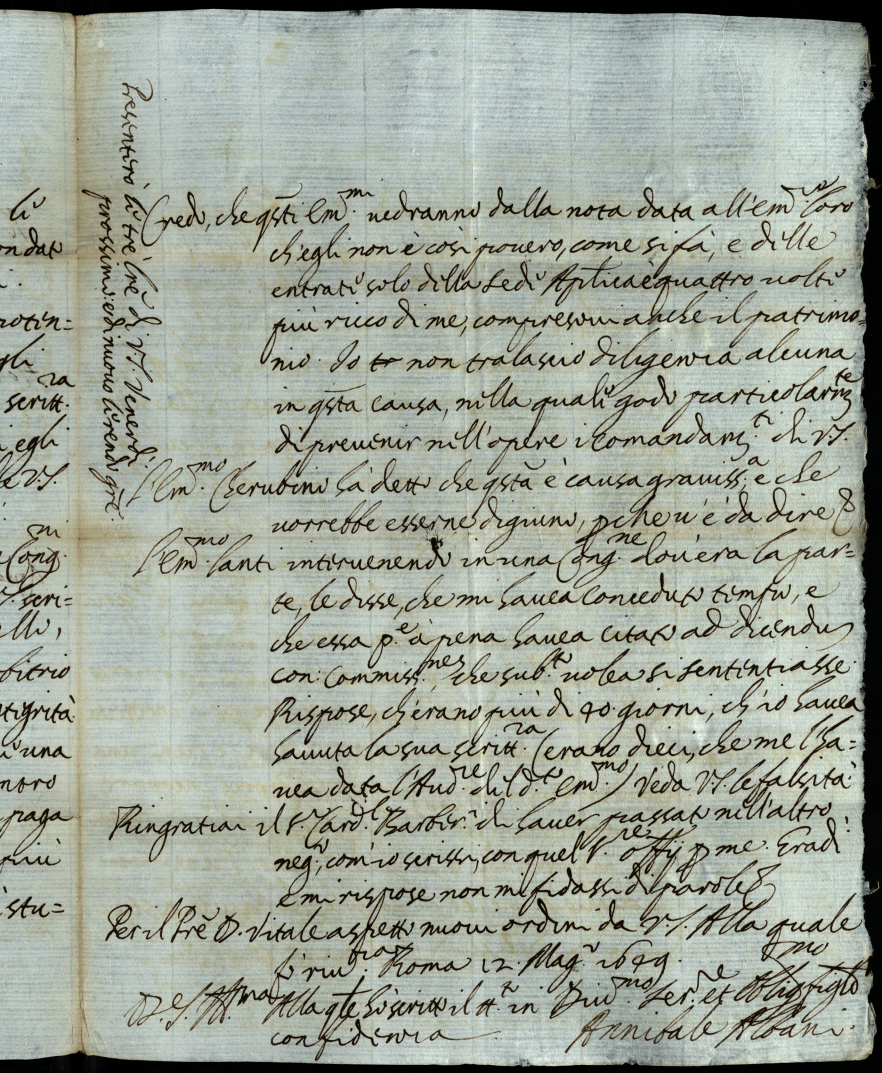 Presenterò le tre lre di V.S. Venerdì
prossimo: et di nuovo li rendo gře.
li
ondato
rotin=
gli
scritt.ra
i egli
le V.S.
Cong.ni
scri=
elli,
bitrio
tigrità
una
ntro
paga
più
istu=
Credo, che qsti Em.mi uedranno dalla nota data all'em.ze loro
ch'egli non è così pouero, come si fà, e delle
entrate solo della Sede Aplica è quattro uolte
più ricco di me, compresoui anche il patrimo=
nio. Io non tralascio diligenza alcuna
in qsta causa, nella quale godo particolarm.te
di preuenir nell'opere i comandam.ti di V.S.
l'Em.mo Cherubino hà detto che qsta è causa grauiss.a e che
uorrebbe esserne digiuno, pche u'è da dire
l'Em.mo lanti interuenendo in una Cong.ne dou'era la par=
te, le disse, che mi hauea conceduto tempo, e
che essa p.e à pena hauea citato ad dicendũ
con: Commiss.nes, che sub.to uolea si sententiasse.
Rispose, ch'erano più di 40. giorni, ch'io hauea
hauuta la sua scritt.ra (erano dieci, che me l'ha=
uea data l'Aud.re del d.to Em.mo) Veda V.S. le falsità.
Ringratiai il S.r Card.l Barber.i di hauer passato nell'altro
neg.o, com'io scrissi, con quel S.re offij p me. Gradì
e mi rispose non mi fidassi di parole
Per il Prẽ D. Vitale aspetto nuoui ordini da V.S. Alla quale
fò riu.tia Roma 12. Mag.o 1649.
Di V.S. Ill.ma Alla qle hò scritto il tt.o in Diu.mo Ser.re et Oblig.mo figlo
confidenza Annibale Albani.